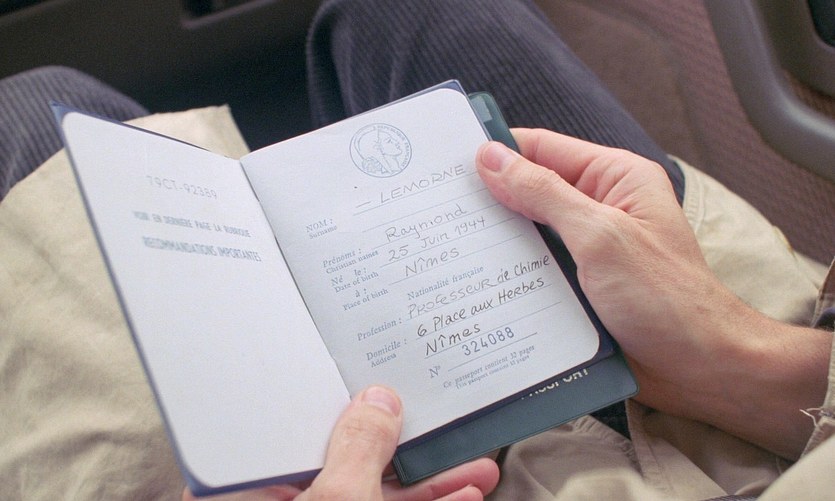 79CT-92389
VOIR EN DERNIERE PAGE LA RUBRIQUE
RECOMMANDATIONS IMPORTANTES
NOM : LEMORNE
Surname
Prénoms : Raymond
Christian names
Né le : 25 Juin 1944
Date of birth
à : Nîmes
Place of birth
Nationalité française
Profession : Professeur de Chimie
Domicile : 6 Place aux Herbes
Address Nîmes
N° 324088
Ce passeport contient 32 pages
PASSPORT